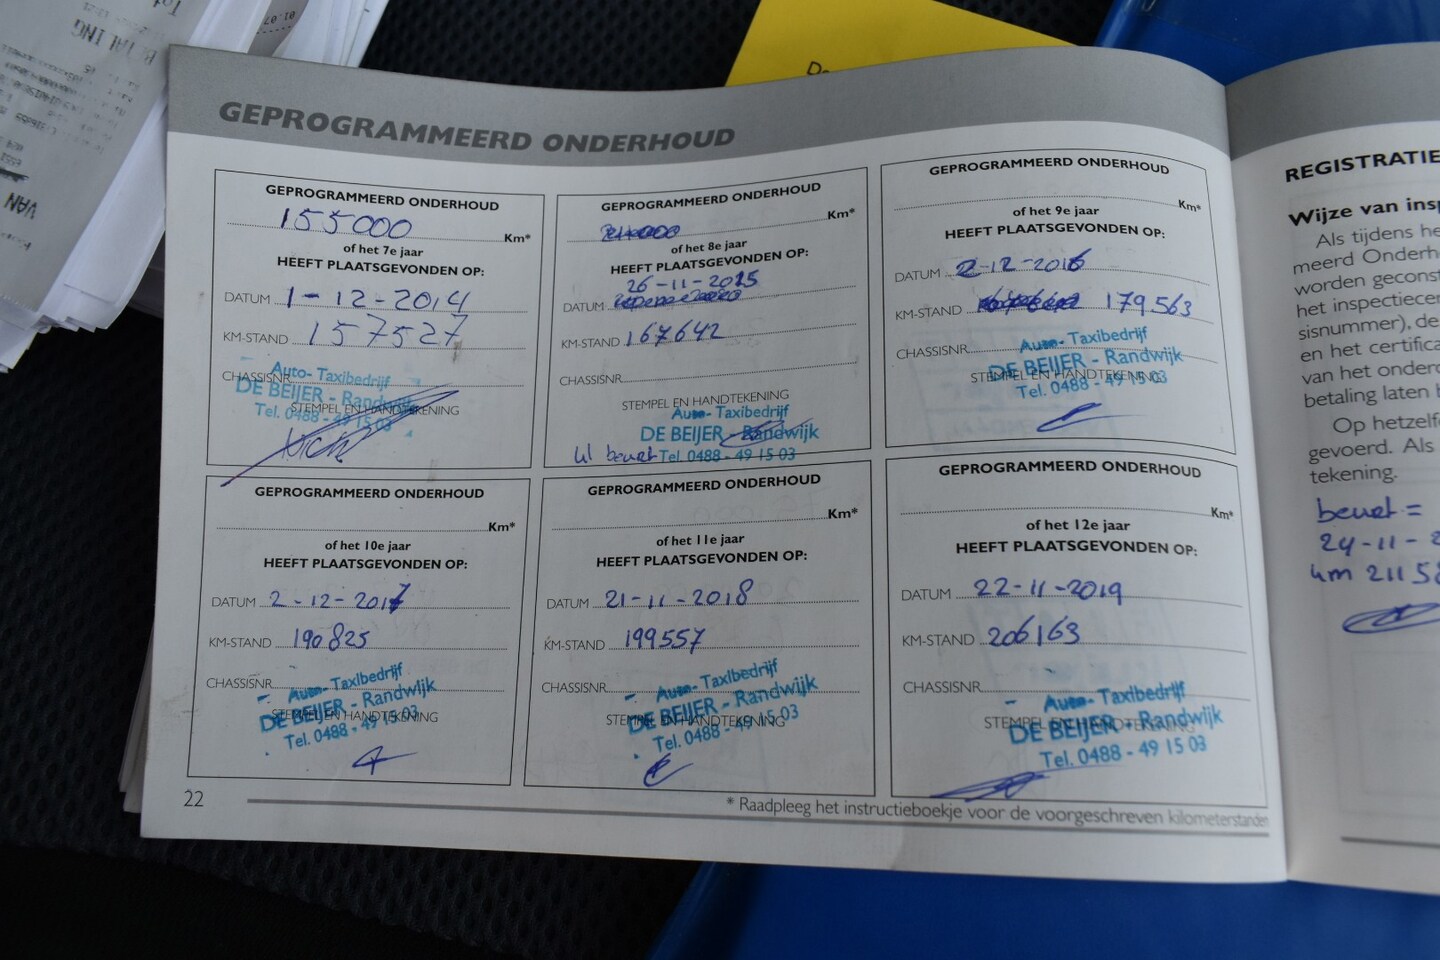 BETALING
VAN
GEPROGRAMMEERD ONDERHOUD
GEPROGRAMMEERD ONDERHOUD
155000 Km*
of het 7e jaar
HEEFT PLAATSGEVONDEN OP:
DATUM 1-12-2014
KM-STAND 157527
CHASSISNR.
Auto-Taxibedrijf
DE BEIJER - Randwijk
STEMPEL EN HANDTEKENING
Tel. 0488-49 15 03
GEPROGRAMMEERD ONDERHOUD
Km*
of het 8e jaar
HEEFT PLAATSGEVONDEN OP:
26-11-2015
DATUM
KM-STAND 167642
CHASSISNR.
STEMPEL EN HANDTEKENING
Auto-Taxibedrijf
DE BEIJER - Randwijk
Tel. 0488-49 15 03
GEPROGRAMMEERD ONDERHOUD
Km*
of het 9e jaar
HEEFT PLAATSGEVONDEN OP:
DATUM 2-12-2016
KM-STAND 179563
CHASSISNR.
Auto-Taxibedrijf
DE BEIJER - Randwijk
STEMPEL EN HANDTEKENING
Tel. 0488-49 15 03
GEPROGRAMMEERD ONDERHOUD
Km*
of het 10e jaar
HEEFT PLAATSGEVONDEN OP:
DATUM 2-12-2017
KM-STAND 190825
CHASSISNR.
Auto-Taxibedrijf
DE BEIJER - Randwijk
STEMPEL EN HANDTEKENING
Tel. 0488-49 15 03
GEPROGRAMMEERD ONDERHOUD
Km*
of het 11e jaar
HEEFT PLAATSGEVONDEN OP:
DATUM 21-11-2018
KM-STAND 199557
CHASSISNR.
Auto-Taxibedrijf
DE BEIJER - Randwijk
STEMPEL EN HANDTEKENING
Tel. 0488-49 15 03
GEPROGRAMMEERD ONDERHOUD
Km*
of het 12e jaar
HEEFT PLAATSGEVONDEN OP:
DATUM 22-11-2019
KM-STAND 206163
CHASSISNR.
Auto-Taxibedrijf
STEMPEL EN HANDTEKENING
DE BEIJER - Randwijk
Tel. 0488-49 15 03
22
* Raadpleeg het instructieboekje voor de voorgeschreven kilometerstanden
REGISTRATIE
Wijze van insp
Als tijdens he
meerd Onderh
worden geconst
het inspectiecer
sisnummer), de
en het certifica
van het onderd
betaling laten
Op hetzelf
gevoerd. Als
tekening.
beurt =
24-11-2
km 21158